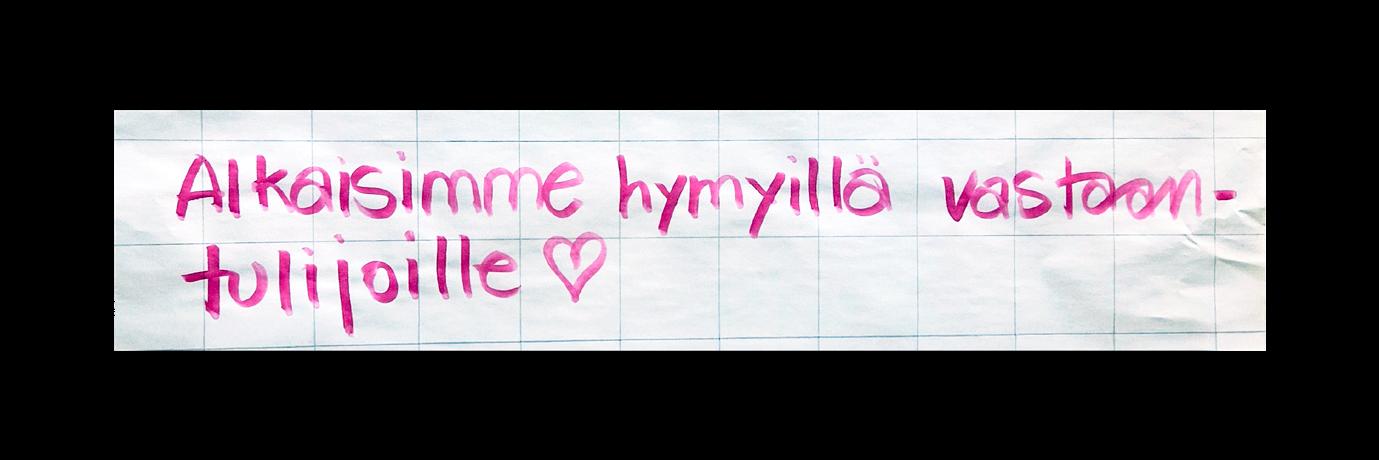 Alkaisimme hymyillä vastaan-
tulijoille ♡